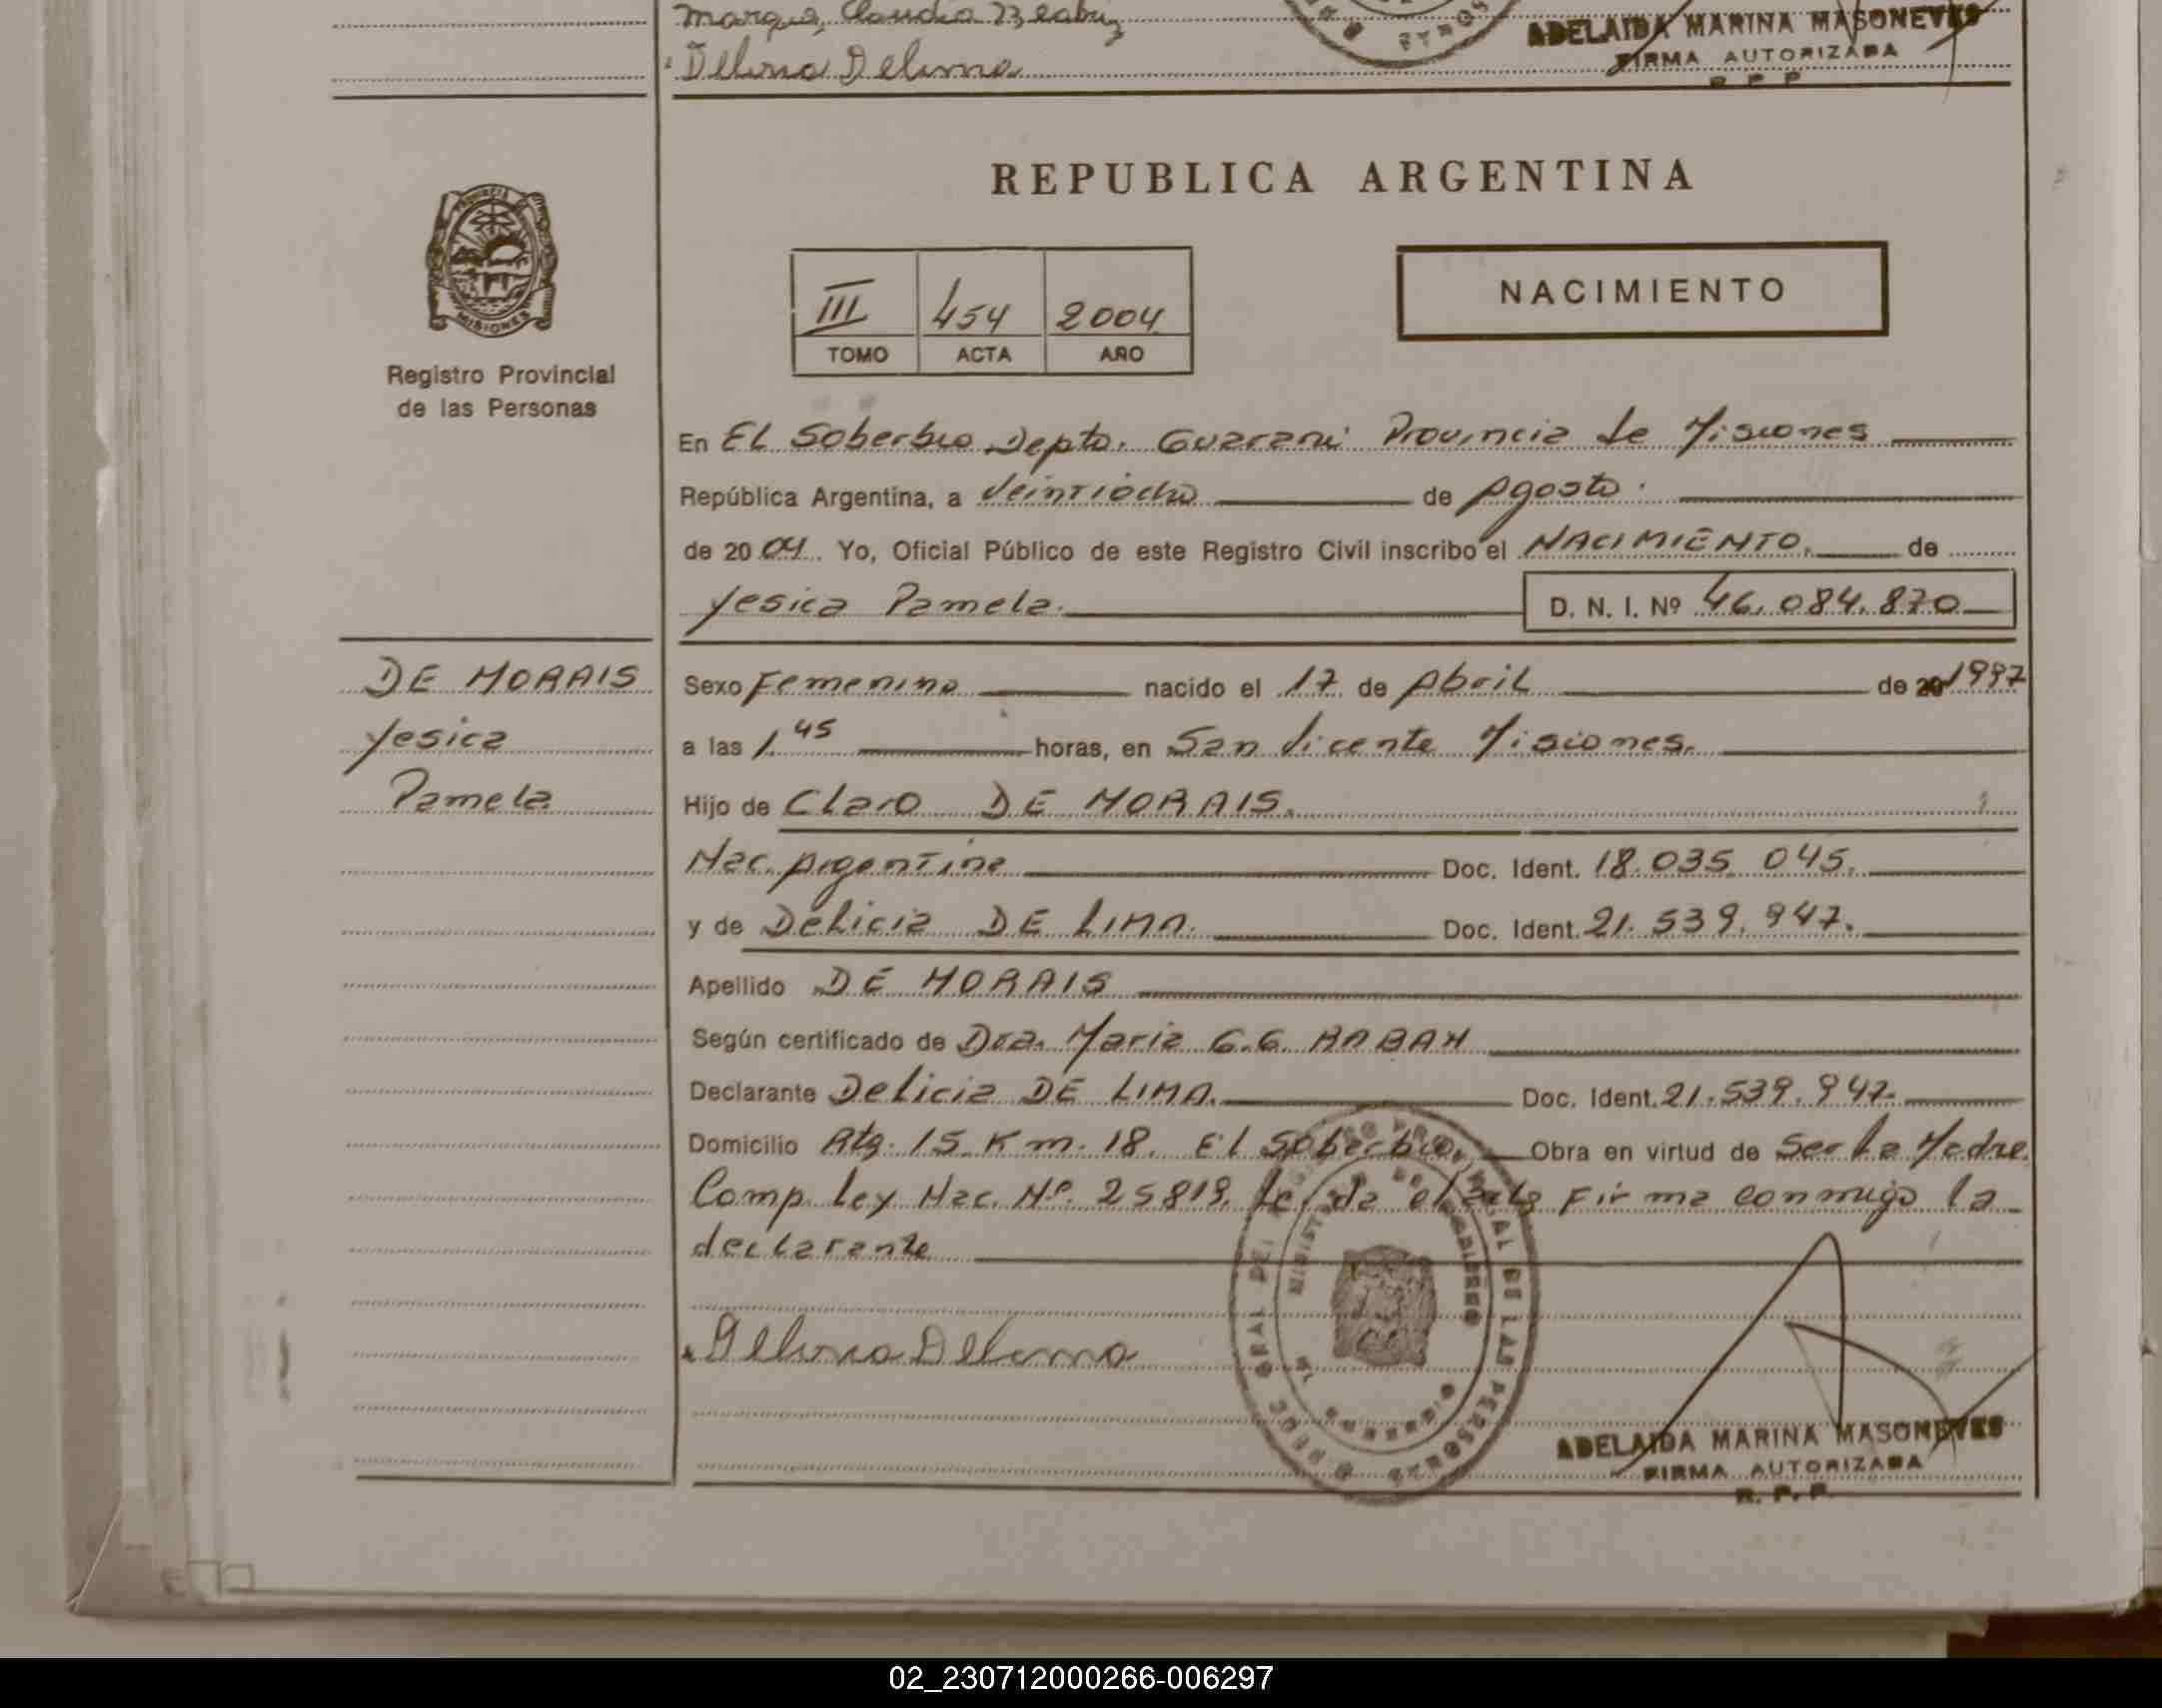 Marque, Claudia Beatriz
Delicia Delima
ADELAIDA MARINA MASONEVES
FIRMA AUTORIZADA
R. P. P.
REPUBLICA ARGENTINA
PROVINCIA DE
MISIONES
Registro Provincial
de las Personas
III 454 2004
TOMO ACTA AÑO
NACIMIENTO
En EL Soberbio Depto. Guarani Provincia de Misiones
República Argentina, a Veintiocho de Agosto.
de 2004. Yo, Oficial Público de este Registro Civil inscribo el NACIMIENTO. de
Yesica Pamela. D. N. I. Nº 46.084.870
DE MORAIS
Yesica
Pamela
Sexo Femenino nacido el 17 de Abril de 20 1997
a las 1.45 horas, en San Vicente Misiones.
Hijo de Claro DE MORAIS.
Nac. Argentina Doc. Ident. 18.035.045.
y de Delicia DE LIMA. Doc. Ident. 21.539.947.
Apellido DE MORAIS
Según certificado de Dra. Maria G.G. RABAH
Declarante Delicia DE LIMA. Doc. Ident. 21.539.947.
Domicilio Rta. 15 Km. 18. El Soberbio. Obra en virtud de Ser la Madre
Comp. Ley Nac. Nº 25819. Leida el acta Firma conmigo la
declarante
Delicia Delima
ADELAIDA MARINA MASONEVES
FIRMA AUTORIZADA
R. P. P.
02_230712000266-006297